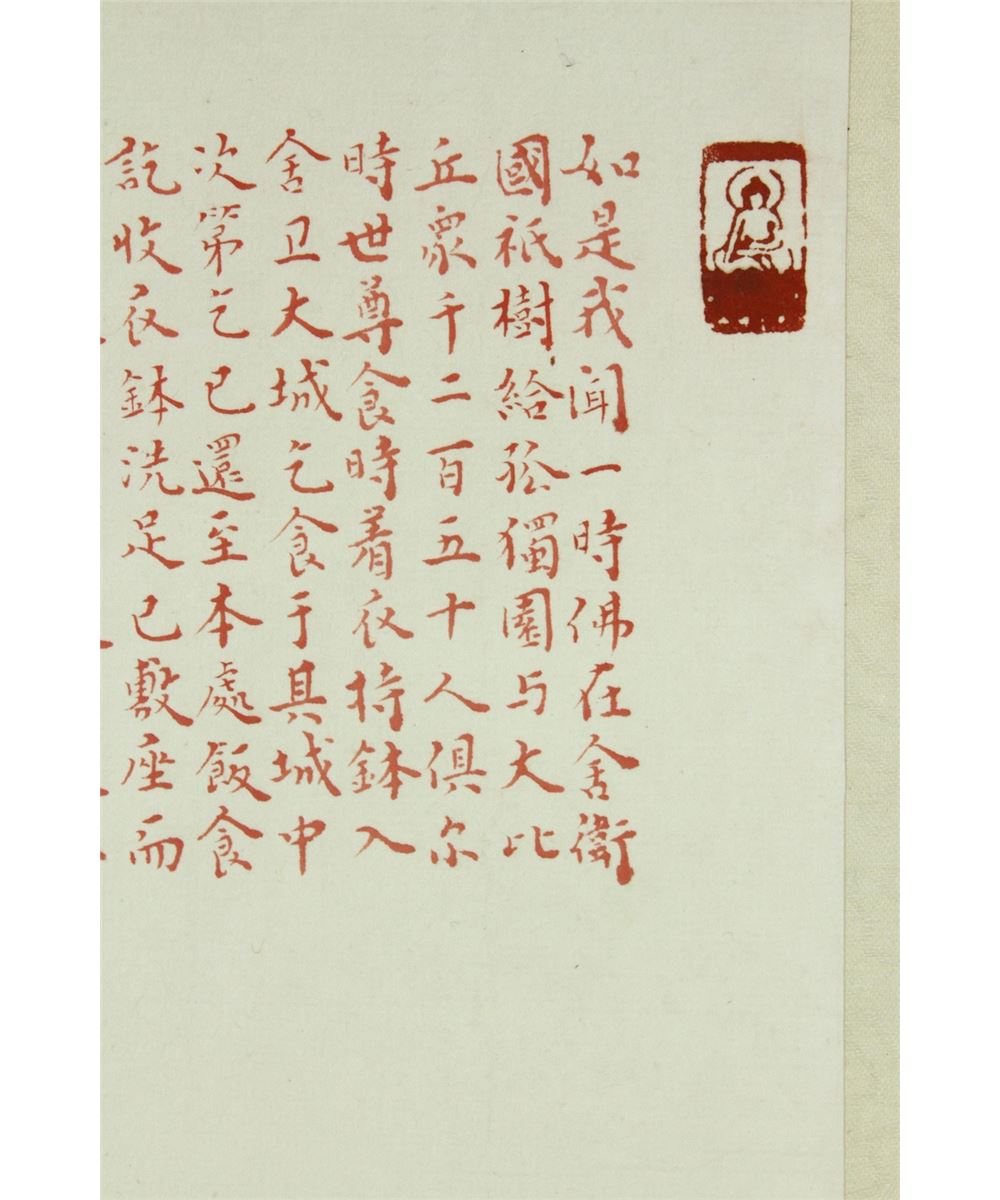 如是我闻一時佛在舍衛
國祇樹給孤獨園与大比
丘眾千二百五十人俱尔
時世尊食時着衣持鉢入
舍卫大城乞食于其城中
次第乞已還至本處飯食
訖收衣鉢洗足已敷座而